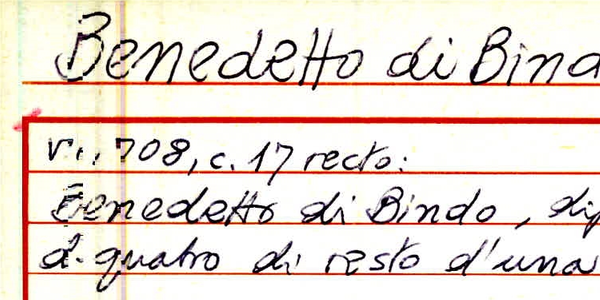 Benedetto di Bind
v., 708, c. 17 recto:
Benedetto di Bindo, dip
d. quatro di resto d'una